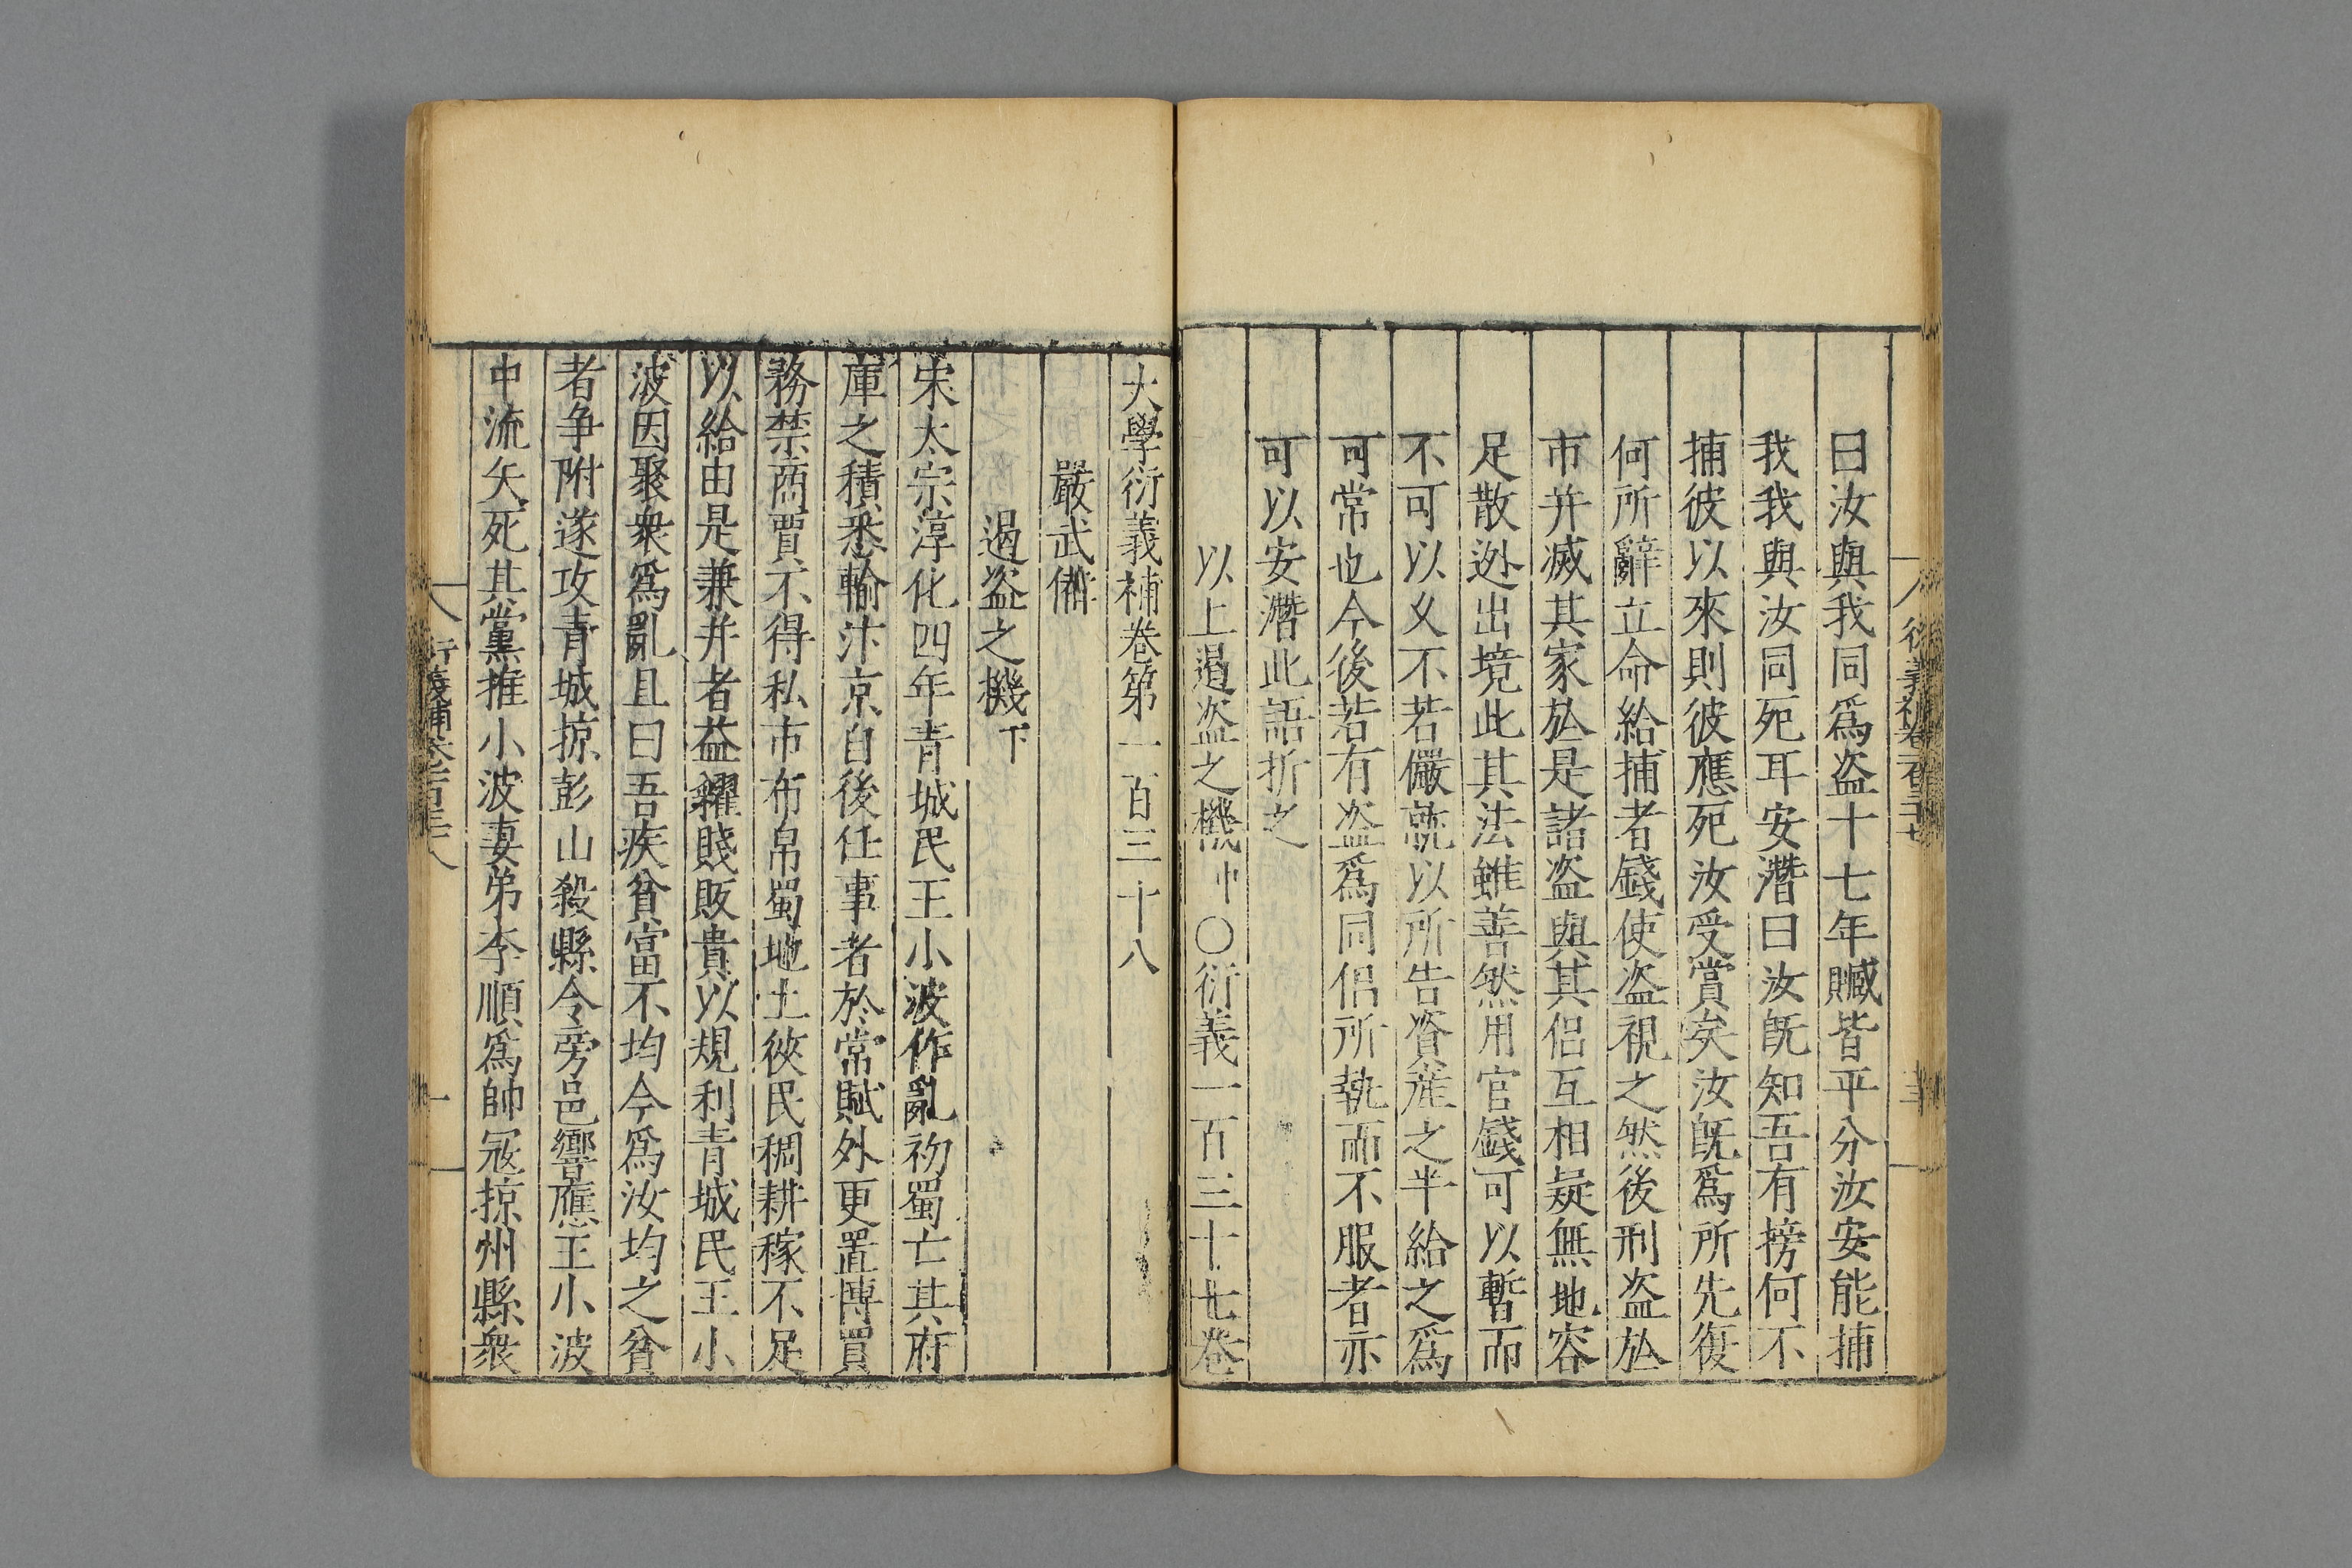 衍義補卷一百三十七
曰汝與我同爲盗十七年贓皆平分汝安能捕
我我與汝同死耳安濳曰汝旣知吾有榜何不
捕彼以來則彼應死汝受賞矣汝旣爲所先復
何所辭立命給捕者錢使盗視之然後刑盗於
市并滅其家於是諸盗與其侣互相疑無地容
足散逊出境此其法雖善然用官錢可以暫而
不可以乆不若儼就以所告資產之半給之爲
可常也今後若有盗爲同侣所執而不服者亦
可以安濳此語折之
以上遏盗之機中〇衍義一百三十七卷
大學衍義補卷第一百三十八
嚴武備
遏盗之機下
宋太宗淳化四年青城民王小波作亂初蜀亡其府
庫之積悉輸汴京自後任事者於常賦外更置博買
務禁商賈不得私市布帛蜀地土狹民稠耕稼不足
以給由是兼并者益糴賤販貴以規利青城民王小
波因聚衆爲亂且曰吾疾貧富不均今爲汝均之貧
者争附遂攻青城掠彭山殺縣令旁邑響應王小波
中流矢死其黨推小波妻弟李順爲帥冦掠州縣衆
衍義補卷一百三十八
一